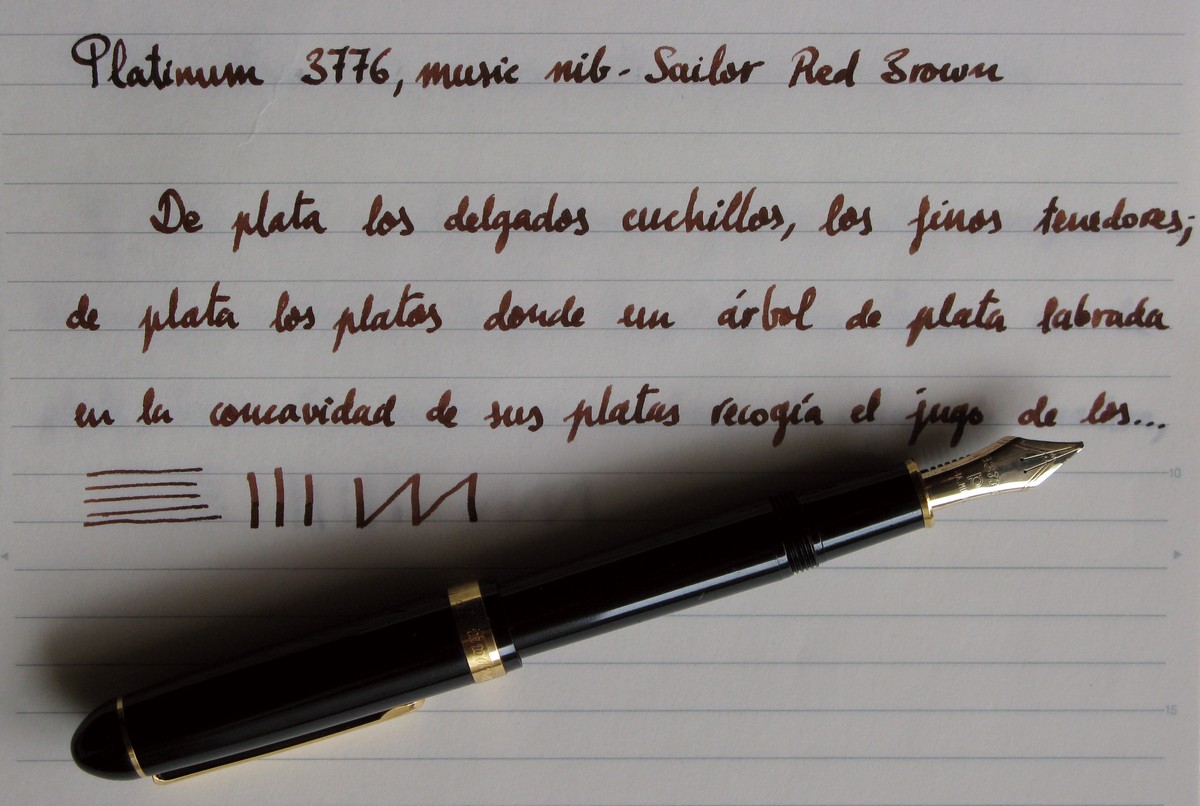 Platinum 3776, music nib - Sailor Red Brown
De plata los delgados cuchillos, los finos tenedores;
de plata los platos donde un árbol de plata labrada
en la concavidad de sus platas recogía el jugo de los...
10
15